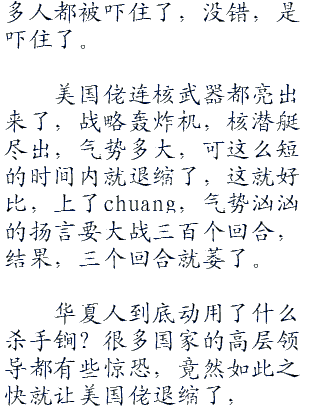 多人都被吓住了，没错，是
吓住了。
美国佬连核武器都亮出
来了，战略轰炸机，核潜艇
尽出，气势多大，可这么短
的时间内就退缩了，这就好
比，上了chuang，气势汹汹
的扬言要大战三百个回合，
结果，三个回合就萎了。
华夏人到底动用了什么
杀手锏？很多国家的高层领
导都有些惊恐，竟然如此之
快就让美国佬退缩了，